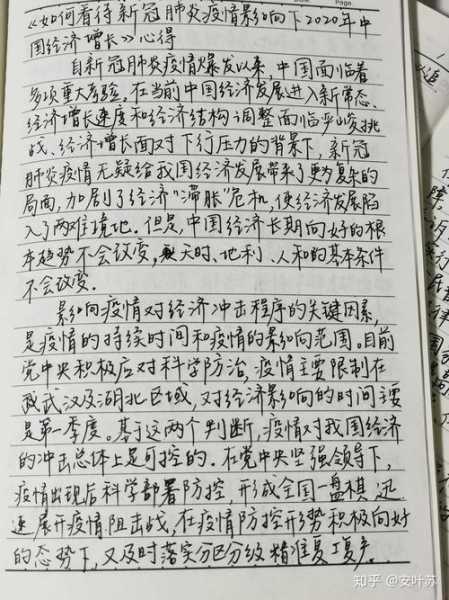 《如何看待新冠肺炎疫情影响下2020年中
国经济增长》心得
自新冠肺炎疫情爆发以来,中国面临着
多项重大考验。在当前中国经济发展进入新常态、
经济增长速度和经济结构调整面临严峻挑
战、经济增长面对下行压力的背景下,新冠
肺炎疫情无疑给我国经济发展带来了更为复杂的
局面,加剧了经济"滞胀"危机,使经济发展陷
入了两难境地。但是,中国经济长期向好的根
本趋势不会改变,天时、地利、人和的基本条件
不会改变。
影响疫情对经济冲击程序的关键因素,
是疫情的持续时间和疫情的影响范围。目前
党中央积极应对科学防治,疫情主要限制在
武汉及湖北区域,对经济影响的时间主要
是第一季度。基于这两个判断,疫情对我国经济
的冲击总体上是可控的。在党中央坚强领导下,
疫情出现后科学部署防控,形成全国一盘棋,迅
速展开疫情阻击战,在疫情防控形势积极向好
的态势下,又及时落实分区分级精准复工复产
Page
知乎 @安叶苏